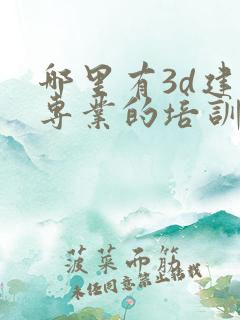 哪里有3d建
专業的培訓
菠菜面筋
未经同意禁止转载